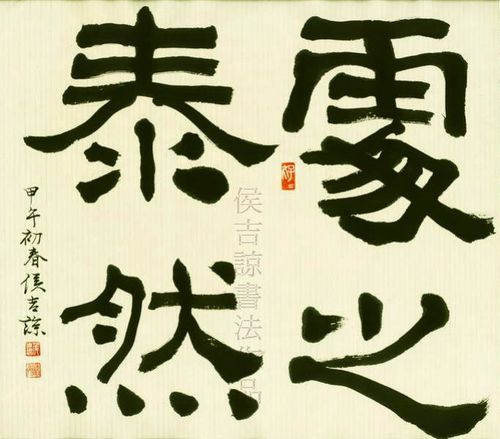 處之
泰然
甲午初春侯吉諒
侯吉諒書法作品